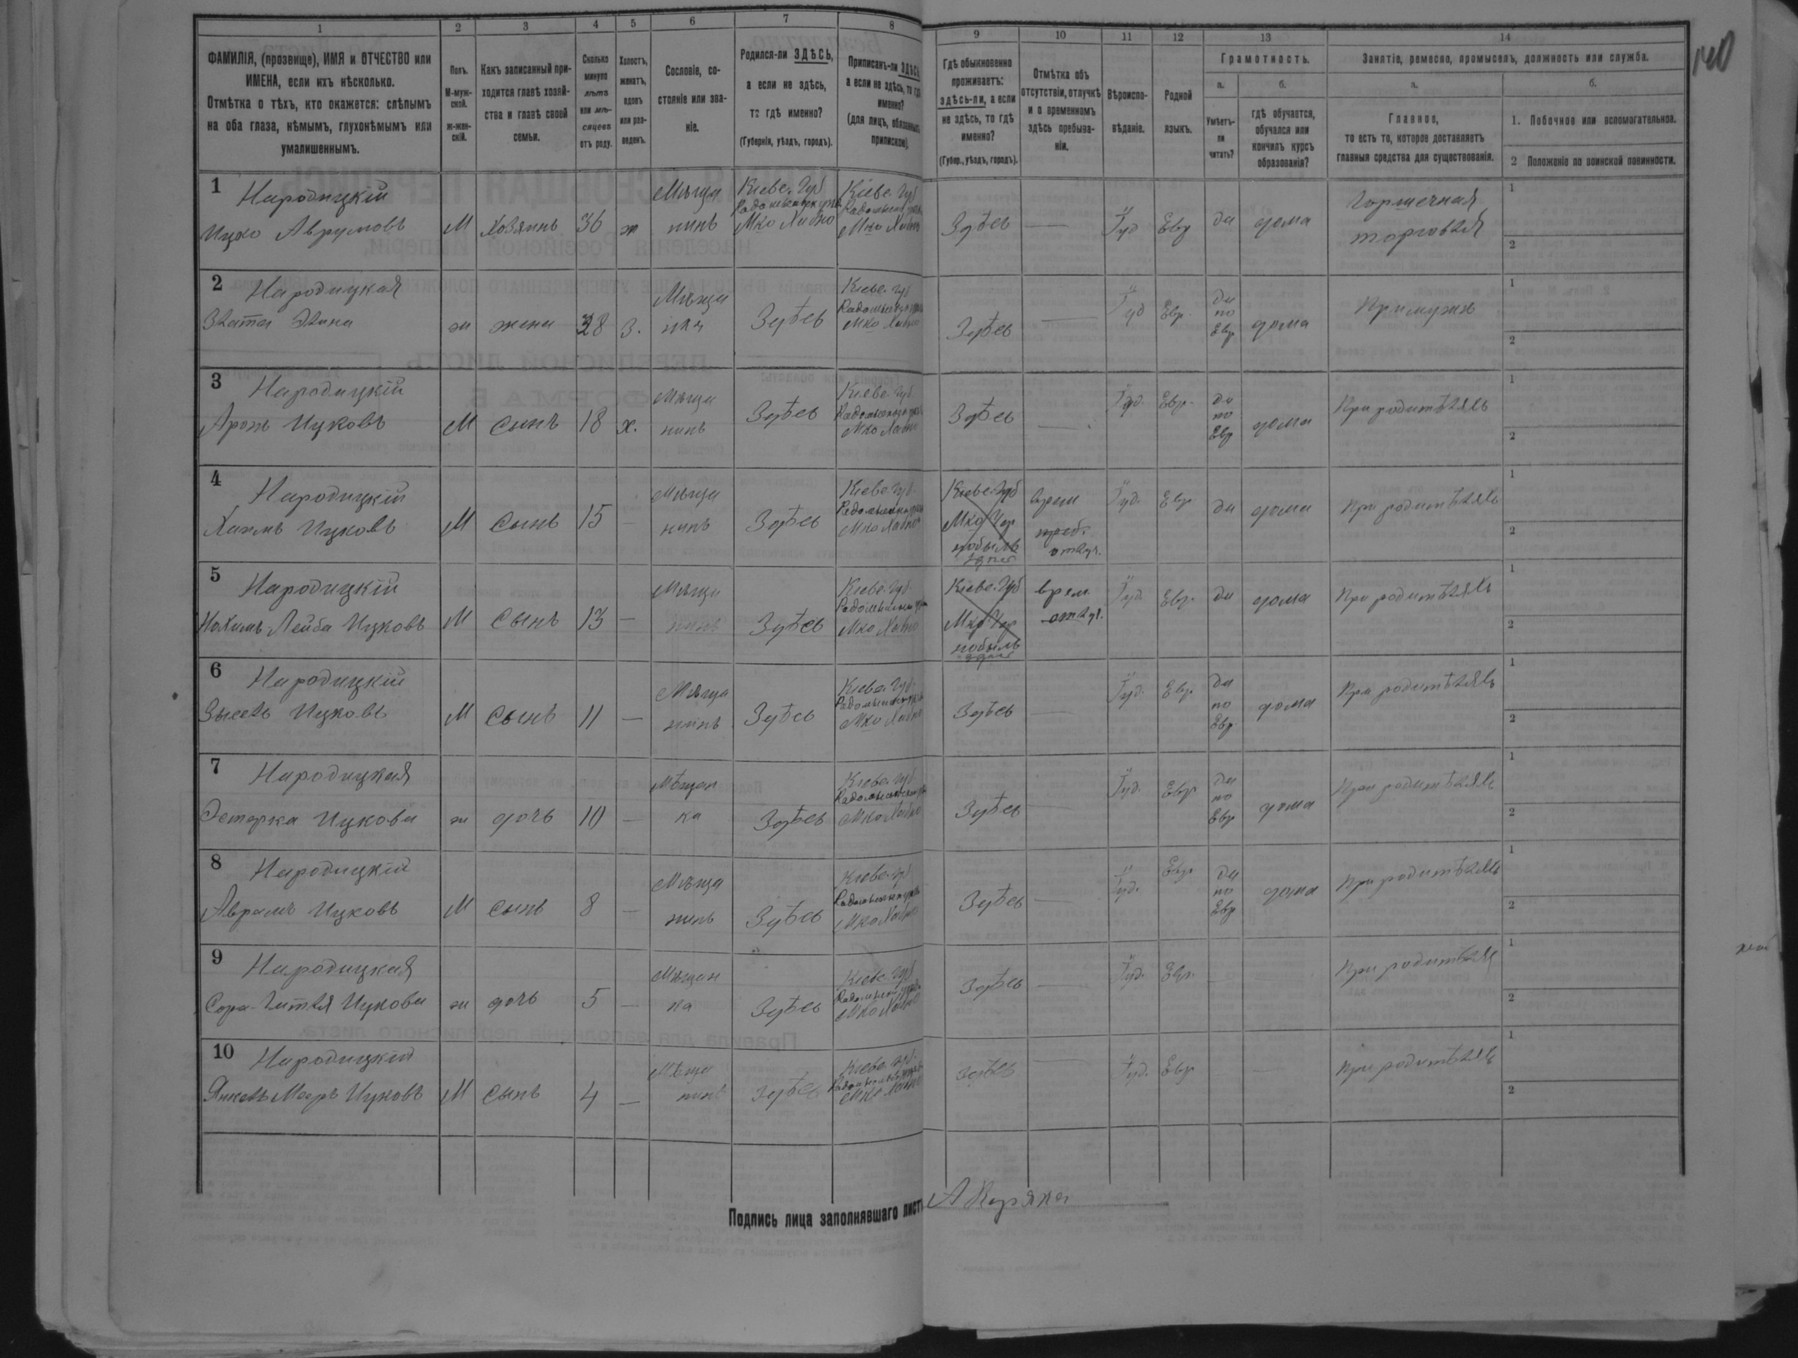 140
1 2 3 4 5 6 7 8 9 10 11 12 13 14
ФАМИЛІЯ, (прозвище), ИМЯ и ОТЧЕСТВО или ИМЕНА, если ихъ нѣсколько.
Отмѣтка о тѣхъ, кто окажется: слѣпымъ на оба глаза, нѣмымъ, глухонѣмымъ или умалишеннымъ.
Полъ. М-мужской. ж-женскій.
Какъ записанный приходится главѣ хозяйства и главѣ своей семьи.
Сколько минуло лѣтъ или мѣсяцевъ отъ роду.
Холостъ, женатъ, вдовъ или разведенъ.
Сословіе, состояніе или званіе.
Родился-ли ЗДѢСЬ, а если не здѣсь, то гдѣ именно?
(Губернія, уѣздъ, городъ).
Приписанъ-ли ЗДѢСЬ, а если не здѣсь, то гдѣ именно?
(для лицъ, обязанныхъ припиской).
Гдѣ обыкновенно проживаетъ: здѣсь-ли, а если не здѣсь, то гдѣ именно?
(Губер., уѣздъ, городъ).
Отмѣтка объ отсутствіи, отлучкѣ и о временномъ здѣсь пребываніи.
Вѣроисповѣданіе.
Родной языкъ.
Грамотность.
а.
Умѣетъ-ли читать?
б.
гдѣ обучается, обучался или кончилъ курсъ образованія?
Занятіе, ремесло, промыселъ, должность или служба.
а.
Главное, то есть то, которое доставляетъ главныя средства для существованія.
б.
1. Побочное или вспомогательное.
2 Положеніе по воинской повинности.
1 Народицкій Мѣща Кіевс. Губ Кіевс. Губ Горшечная 1
Ицко Аврумовъ М Хозяинъ 36 ж нинъ Мко Хабно Мко Хабно Здѣсь — Іуд Евр да дома торговля 2
2 Народицкая Мѣща Кіевс. Губ да 1
Злата жи жена 28 з. нка Здѣсь Мко Хабно Здѣсь — Іуд Евр. по Евр дома При мужѣ 2
3 Народицкій Мѣща Кіевс. Губ да 1
Аронъ Ицковъ М Сынъ 18 х. нинъ Здѣсь Мко Хабно Здѣсь — Іуд. Евр. по Евр дома При родителяхъ 2
4 Народицкій Мѣща Кіевс. Губ. Кіевс. Губ врем 1
Хаимъ Ицковъ М Сынъ 15 — нинъ Здѣсь Мко Хабно Мко Чернобыль отлуч. Іуд. Евр. да дома При родителяхъ 2
5 Народицкій Мѣща Кіевс. Губ. Кіевс. Губ врем. 1
Лейба Ицковъ М Сынъ 13 — нинъ Здѣсь Мко Хабно Мко Чернобыль отлуч. Іуд. Евр. да дома При родителяхъ 2
6 Народицкій Мѣща Кіевс. Губ. да 1
Зысель Ицковъ М Сынъ 11 — нинъ Здѣсь Мко Хабно Здѣсь — Іуд. Евр. по Евр дома При родителяхъ 2
7 Народицкая Мѣщан Кіевс. Губ. да 1
Эстерка Ицкова ж дочь 10 — ка Здѣсь Мко Хабно Здѣсь — Іуд. Евр по Евр дома При родителяхъ 2
8 Народицкій Мѣща Кіевс. Губ. да 1
Аврамъ Ицковъ М Сынъ 8 — нинъ Здѣсь Мко Хабно Здѣсь — Іуд. Евр. по Евр дома При родителяхъ 2
9 Народицкая Мѣщан Кіевс. Губ 1
Сора-Гитля Ицкова ж дочь 5 — ка Здѣсь Мко Хабно Здѣсь — Іуд. Евр. — — При родителяхъ 2
10 Народицкій Мѣща Кіевс. Губ. 1
Янкель Мееръ Ицковъ М Сынъ 4 — нинъ Здѣсь Мко Хабно Здѣсь — Іуд. Евр — — При родителяхъ 2
Подпись лица заполнявшаго листъ